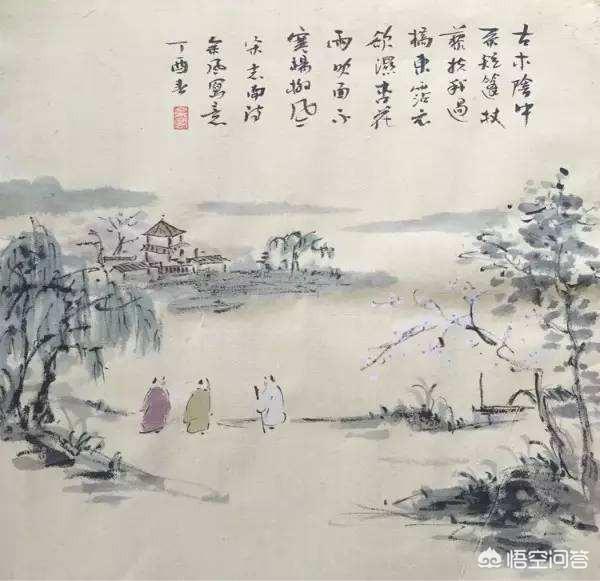 古木陰中
系短篷杖
藜扶我過
橋東霑衣
欲濕杏花
雨吹面不
寒楊柳風
宋志南詩
余風寫意
丁酉春
悟空问答